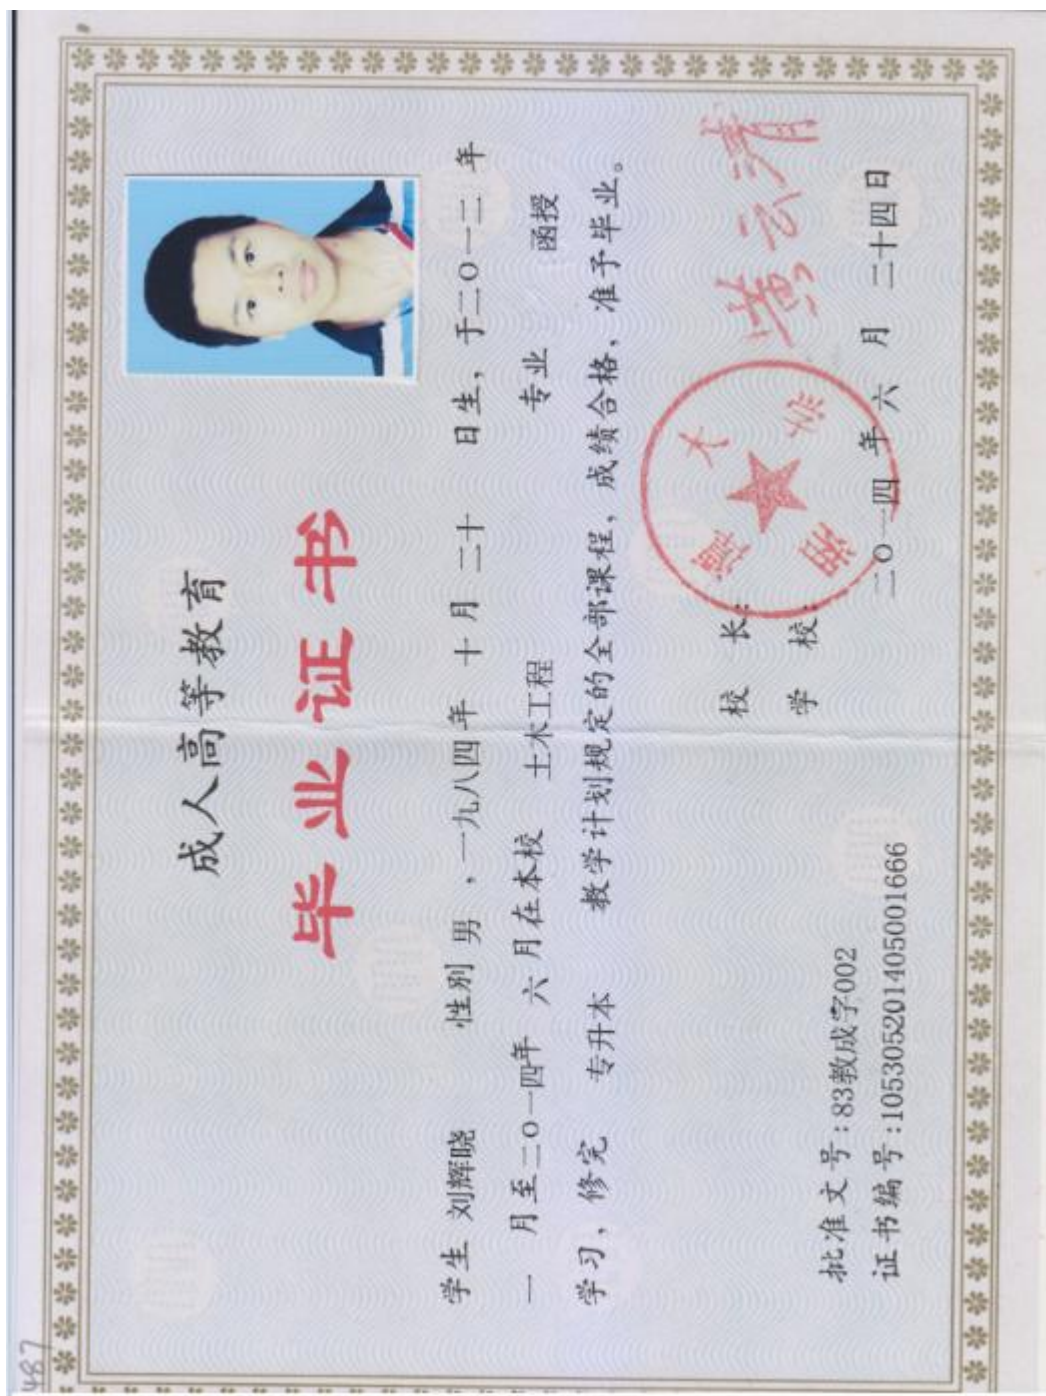 487
成人高等教育
毕业证书
学生 刘辉晓 性别 男 ，一九八四年 十 月 二十 日生，于二〇一二 年
一 月至二〇一四年 六 月在本校 土木工程 专业 函授
学习，修完 专升本 教学计划规定的全部课程，成绩合格，准予毕业。
校 长：
学 校：
湘潭大学
二〇一四 年 六 月 二十四日
批准文号：83教成字002
证书编号：105305201405001666